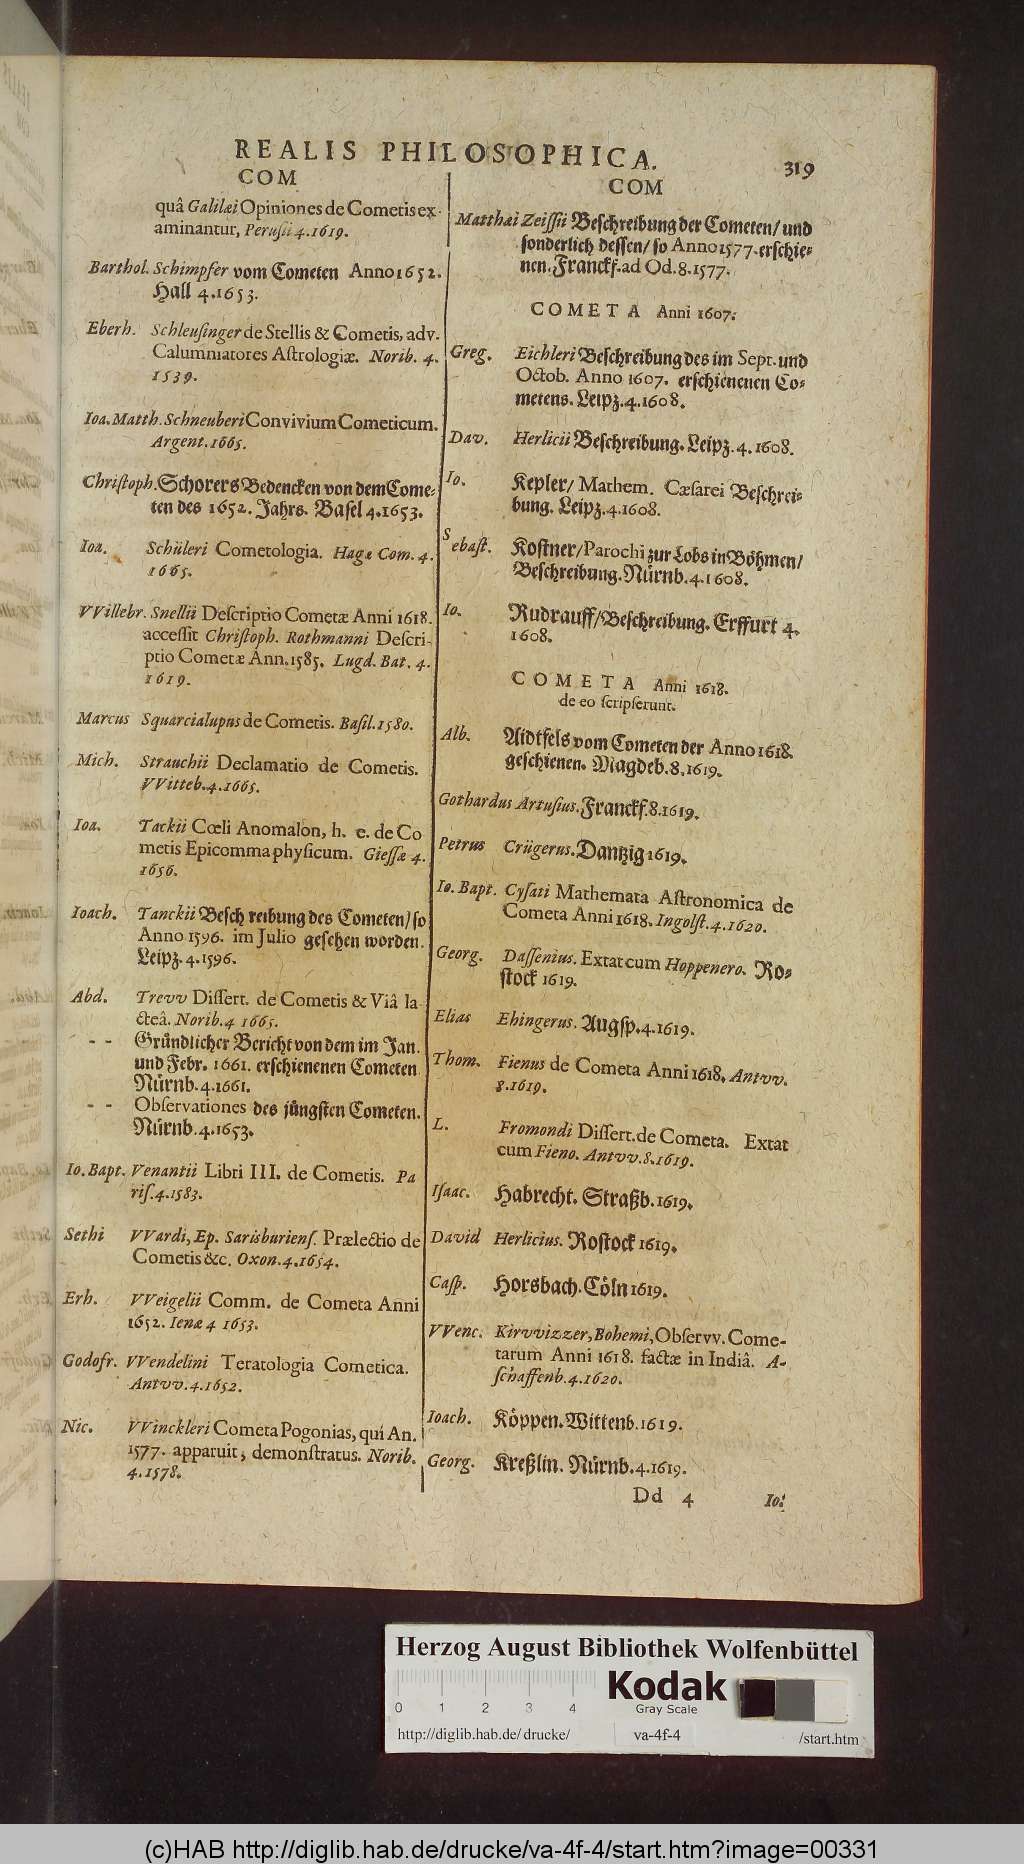 REALIS PHILOSOPHICA.
319
COM
quâ Galilæi Opiniones de Cometis ex-
aminantur, Perusii 4. 1619.
Barthol. Schimpfer vom Cometen Anno 1652.
Hall 4. 1653.
Eberh. Schleusinger de Stellis & Cometis, adv.
Calumniatores Astrologiæ. Norib. 4.
1539.
Ioa. Matth. Schneuberi Convivium Cometicum.
Argent. 1665.
Christoph. Schorers Bedencken von dem Come-
ten des 1652. Jahrs. Basel 4. 1653.
Ioa. Schüleri Cometologia. Hagæ Com. 4.
1665.
VVillebr. Snellii Descriptio Cometæ Anni 1618.
accessit Christoph. Rothmanni Descri-
ptio Cometæ Ann. 1585. Lugd. Bat. 4.
1619.
Marcus Squarcialupus de Cometis. Basil. 1580.
Mich. Strauchii Declamatio de Cometis.
VVitteb. 4. 1665.
Ioa. Tackii Cœli Anomalon, h. e. de Co
metis Epicomma physicum. Giessæ 4.
1656.
Ioach. Tanckii Besch reibung des Cometen/ so
Anno 1596. im Julio gesehen worden.
Leipz. 4. 1596.
Abd. Trevv Dissert. de Cometis & Viâ la
cteâ. Norib. 4 1665.
- - Gründlicher Bericht von dem im Jan.
und Febr. 1661. erschienenen Cometen
Nürnb. 4. 1661.
- - Observationes des jüngsten Cometen.
Nürnb. 4. 1653.
Io. Bapt. Venantii Libri III. de Cometis. Pa
ris. 4. 1583.
Sethi VVardi, Ep. Sarisburiens. Prælectio de
Cometis &c. Oxon. 4. 1654.
Erh. VVeigelii Comm. de Cometa Anni
1652. Ienæ 4 1653.
Godofr. VVendelini Teratologia Cometica.
Antvv. 4. 1652.
Nic. VVinckleri Cometa Pogonias, qui An.
1577. apparuit, demonstratus. Norib.
4. 1578.
COM
Matthæi Zeissii Beschreibung der Cometen/ und
sonderlich dessen/ so Anno 1577. erschie-
nen. Franckf. ad Od. 8. 1577.
COMETA Anni 1607.
Greg. Eichleri Beschreibung des im Sept. und
Octob. Anno 1607. erschienenen Co-
metens. Leipz. 4. 1608.
Dav. Herlicii Beschreibung. Leipz. 4. 1608.
Io. Kepler/ Mathem. Cæsarei Beschrei-
bung. Leipz. 4. 1608.
Sebast. Kostner/ Parochi zur Lobs in Böhmen/
Beschreibung. Nürnb. 4. 1608.
Io. Rudrauff/ Beschreibung. Erffurt 4.
1608.
COMETA Anni 1618.
de eo scripserunt.
Alb. Aidtfels vom Cometen der Anno 1618.
geschienen. Magdeb. 8. 1619.
Gothardus Artusius. Franckf. 8. 1619.
Petrus Crügerus. Dantzig 1619.
Io. Bapt. Cysati Mathemata Astronomica de
Cometa Anni 1618. Ingolst. 4. 1620.
Georg. Dassenius. Extat cum Hoppenero. Ro-
stock 1619.
Elias Ehingerus. Augsp. 4. 1619.
Thom. Fienus de Cometa Anni 1618. Antvv.
8. 1619.
L. Fromondi Dissert. de Cometa. Extat
cum Fieno. Antvv. 8. 1619.
Isaac. Habrecht. Straßb. 1619.
David Herlicius. Rostock 1619.
Casp. Horsbach. Cöln 1619.
VVenc. Kirvvizzer, Bohemi, Observv. Come-
tarum Anni 1618. factæ in Indiâ. A-
schaffenb. 4. 1620.
Ioach. Köppen. Wittenb. 1619.
Georg. Kreßlin. Nürnb. 4. 1619.
Dd 4 Io.
Herzog August Bibliothek Wolfenbüttel
0 1 2 3 4
Kodak
Gray Scale
http://diglib.hab.de/drucke/ va-4f-4 /start.htm
(c)HAB http://diglib.hab.de/drucke/va-4f-4/start.htm?image=00331